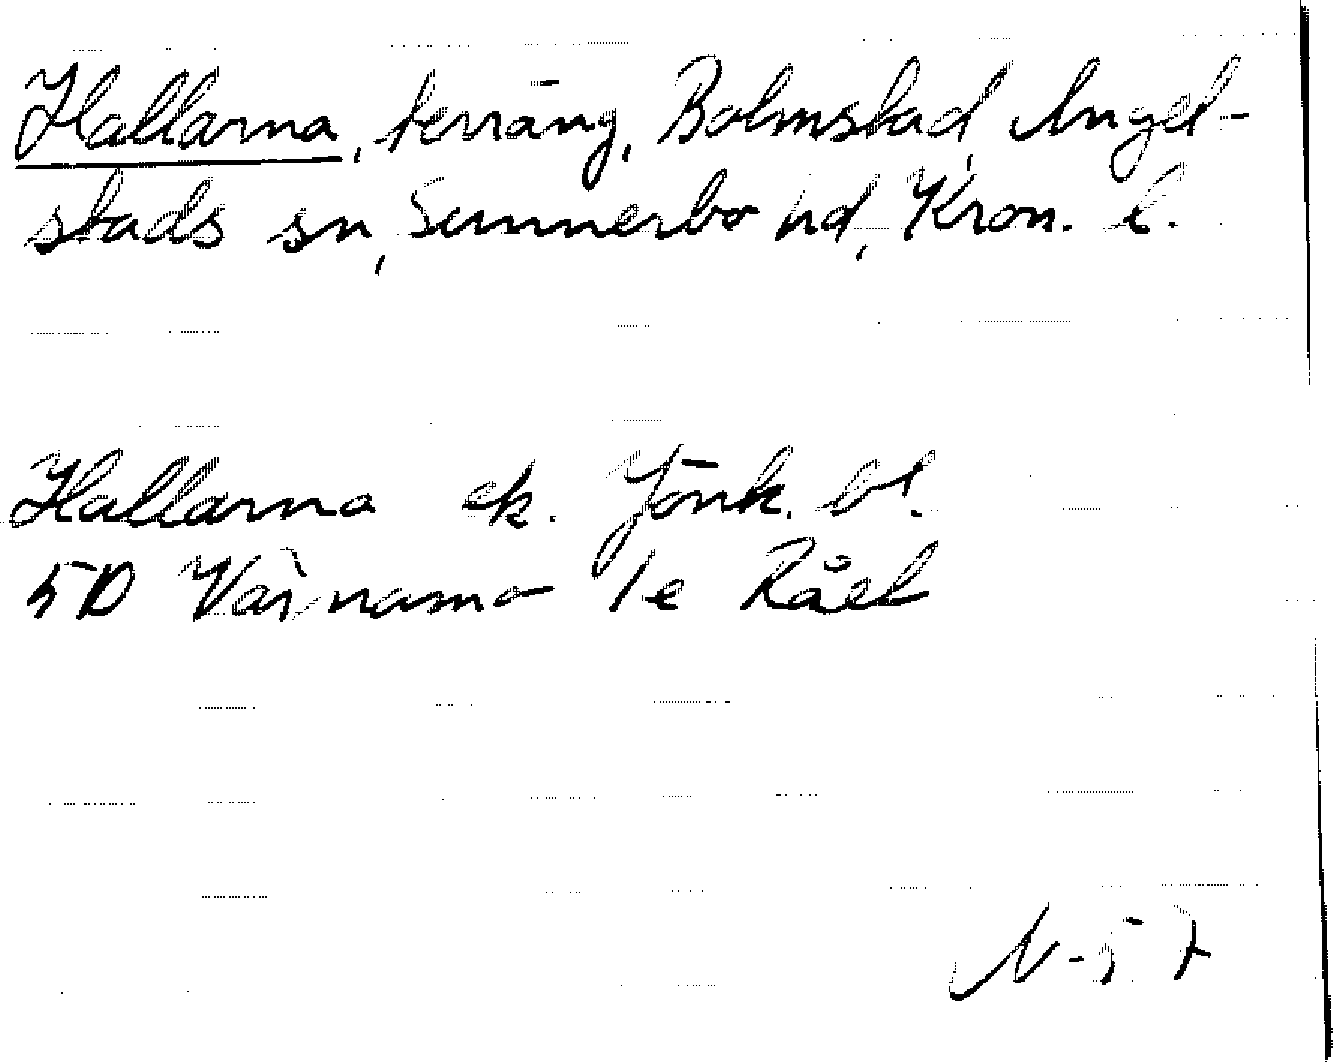 Hallarna, terräng, Bolmstad, Angel-
stads sn, Sunnerbo hd, Kron. l.
Hallarna ek. Jönk. bl.
5D Värnamo 1e
N-57